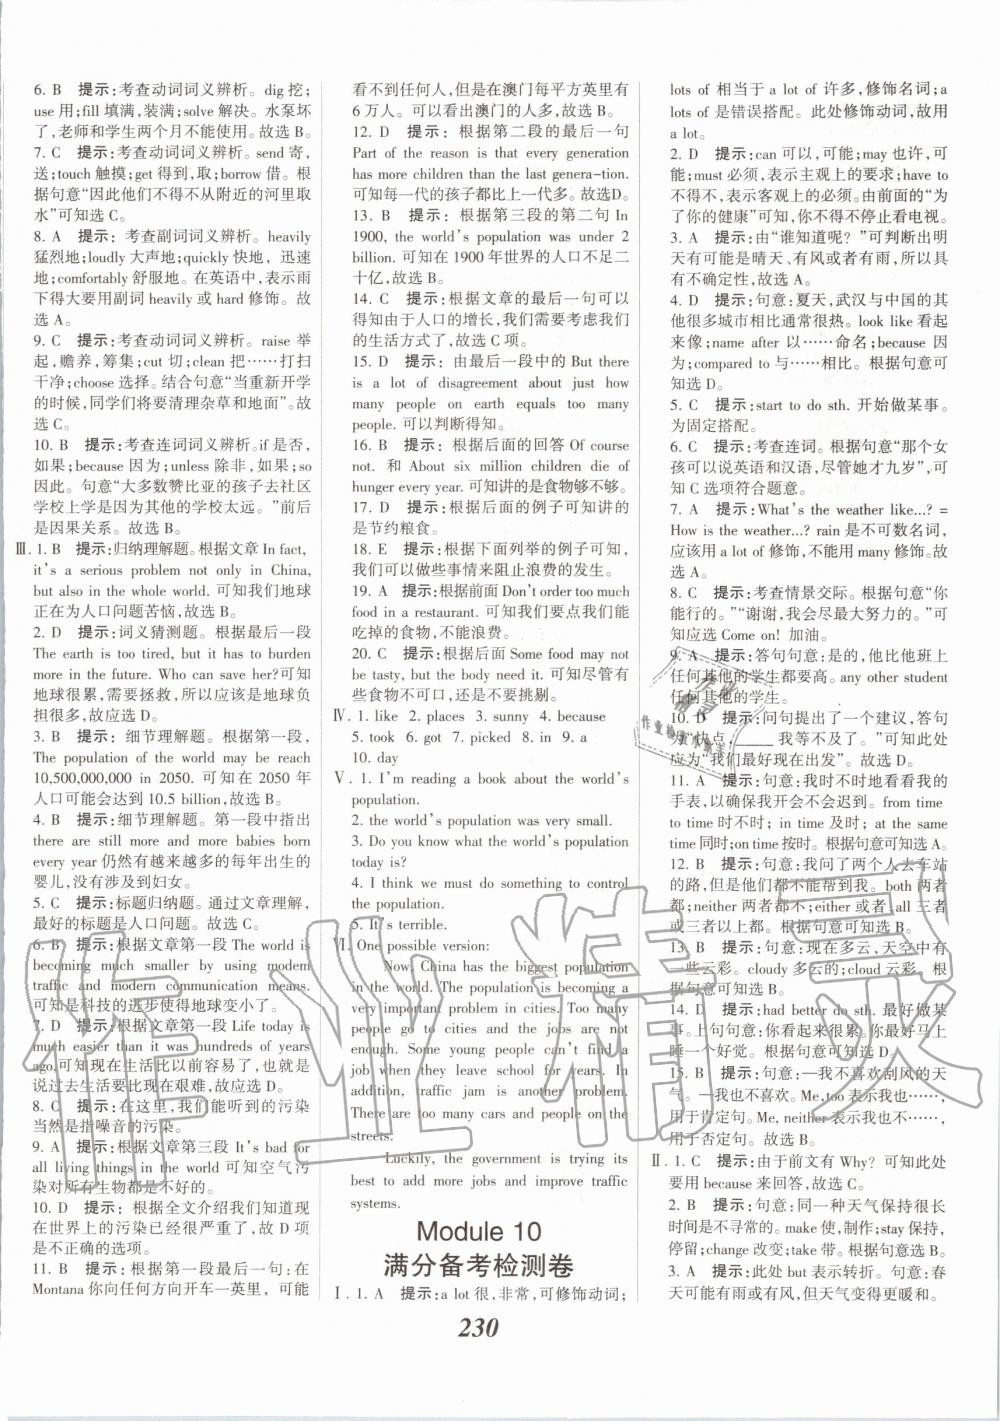 6. B　提示:考查动词词义辨析。dig 挖;
use 用;fill 填满,装满;solve 解决。水泵坏
了,老师和学生两个月不能使用。故选 B。
7. C　提示:考查动词词义辨析。send 寄,
送;touch 触摸;get 得到,取;borrow 借。根
据句意“因此他们不得不从附近的河里取
水”可知选 C。
8. A　提示:考查副词词义辨析。heavily
猛烈地;loudly 大声地;quickly 快地,迅速
地;comfortably 舒服地。在英语中,表示雨
下得大要用副词 heavily 或 hard 修饰。故
选 A。
9. C　提示:考查动词词义辨析。raise 举
起,赡养,筹集;cut 切;clean 把……打扫
干净;choose 选择。结合句意“当重新开学
的时候,同学们将要清理杂草和地面”。故
选 C。
10. B　提示:考查连词词义辨析。if 是否,
如果;because 因为;unless 除非,如果;so
因此。句意“大多数赞比亚的孩子去社区
学校上学是因为其他的学校太远。”前后
是因果关系。故选 B。
Ⅲ. 1. B　提示:归纳理解题。根据文章 In fact,
it's a serious problem not only in China,
but also in the whole world. 可知我们地球
正在为人口问题苦恼,故选 B。
2. D　提示:词义猜测题。根据最后一段
The earth is too tired, but it has to burden
more in the future. Who can save her?可知
地球很累,需要拯救,所以应该是地球负
担很多,故应选 D。
3. B　提示:细节理解题。根据第一段,
The population of the world may be reach
10,500,000,000 in 2050. 可知在 2050 年
人口可能会达到 10.5 billion,故选 B。
4. B　提示:细节理解题。第一段中指出
there are still more and more babies born
every year 仍然有越来越多的每年出生的
婴儿,没有涉及到妇女。
5. C　提示:标题归纳题。通过文章理解,
最好的标题是人口问题。故选 C。
6. B　提示:根据文章第一段 The world is
becoming much smaller by using modem
traffic and modern communication means.
可知是科技的进步使得地球变小了。
7. D　提示:根据文章第一段 Life today is
much easier than it was hundreds of years
ago.可知现在生活比以前容易了,也就是
说过去生活要更难一些,故应选 D。
8. C　提示:在这里,我们能听到的污染
当然是指噪音的污染。
9. A　提示:根据文章第三段 It's bad for
all living things in the world 可知空气污
染对所有生物都是不好的。
10. D　提示:根据全文介绍我们知道,现
在世界上的污染已经很严重了,故 D 项
是正确的选项。
11. B　提示:根据第一段的最后一句:在
Montana 你向任何方向开车一英里,可能
看不到任何人,但是在澳门每平方英里有
6 万人。可以看出在澳门的人多,故选 B。
12. D　提示:根据第二段的最后一句
Part of the reason is that every generation
has more children than the last genera-tion.
可知每一代的孩子都比上一代多。故选D。
13. B　提示:根据第三段的第二句 In
1900, the world's population was under 2
billion. 可知在 1900 年世界的人口不足二
十亿,故选 B。
14. C　提示:根据文章的最后一句可以
得知由于人口的增长,我们需要考虑我们
的生活方式了,故选 C 项。
15. D　提示:由最后一段中的 But there
is a lot of disagreement about just how
many people on earth equals too many
people. 可以判断得知。
16. B　提示:根据后面的回答 Of course
not. 和 About six million children die of
hunger every year. 可知讲的是食物够不够。
17. D　提示:根据后面的回答可知讲的
是节约粮食。
18. E　提示:根据下面列举的例子可知,
可以做些事情来阻止浪费的发生。
19. A　提示:根据前面 Don't order too much
food in a restaurant. 可知我们要点我们能
吃掉的食物,不能浪费。
20. C　提示:根据后面 Some food may not
be tasty, but the body need it. 可知尽管有
些食物不可口,还是不要挑剔。
Ⅳ. 1. like　2. places　3. sunny　4. because
5. took　6. got　7. picked　8. in　9. a
10. day
Ⅴ. 1. I'm reading a book about the world's
population.
2. the world's population was very small.
3. Do you know what the world's population
today is?
4. I think we must do something to control
the population.
5. It's terrible.
Ⅵ. One possible version:
Now, China has the biggest population
in the world. The population is becoming a
very important problem in cities. Too many
people go to cities and the jobs are not
enough. Some young people can't find a
job when they leave school for years. In
addition, traffic jam is another problem.
There are too many cars and people on the
streets.
Luckily, the government is trying its
best to add more jobs and improve traffic
systems.
Module 10
满分备考检测卷
Ⅰ. 1. A　提示:a lot 很,非常,可修饰动词;
lots of 相当于 a lot of 许多,修饰名词;a
lots of 是错误搭配。此处修饰动词,故用
a lot。
2. D　提示:can 可以,可能;may 也许,可
能;must 必须,表示主观上的要求;have to
不得不,表示客观上的必须。由前面的“为
了你的健康”可知,你不得不停止看电视。
3. A　提示:由“谁知道呢?”可判断出明
天有可能是晴天、有风或者有雨,所以具
有不确定性,故选 A。
4. D　提示:句意:夏天,武汉与中国的其
他很多城市相比通常很热。look like 看起
来像;name after 以……命名;because 因
为;compared to 与……相比。根据句意可
知选 D。
5. C　提示:start to do sth. 开始做某事。
为固定搭配。
6. C　提示:考查连词。根据句意“那个女
孩可以说英语和汉语,尽管她才九岁”,可
知 C 选项符合题意。
7. A　提示:What's the weather like...? =
How is the weather...? rain 是不可数名词,
应该用 a lot of 修饰,不能用 many 修饰。故
选 A。
8. C　提示:考查情景交际。根据句意“你
能行的。”“谢谢,我会尽最大努力的。”可
知应选 Come on! 加油。
9. A　提示:答句句意:是的,他比他班上
任何其他的学生都要高。any other student
任何其他的学生。
10. D　提示:问句提出了一个建议,答句
为“快点,____我等不及了。”可知此处
应为“我们最好现在出发”。故选 D。
11. A　提示:句意:我时不时地看看我的
手表,以确保我开会不会迟到。from time
to time 时不时;in time 及时;at the same
time 同时;on time 按时。根据句意可知选 A。
12. B　提示:句意:我问了两个人去车站
的路,但是他们都不能帮到我。both 两者
都;neither 两者都不;either 或者;all 三者
或三者以上都。故选 B。
13. B　提示:句意:现在多云,天空中有
一些云彩。cloudy 多云的;cloud 云彩。根
据句意可知选 B。
14. D　提示:had better do sth. 最好做某
事。上句句意:你看起来很累。你最好马上
睡一个好觉。根据句意可知选 D。
15. B　提示:句意:—我不喜欢刮风的天
气。—我也不喜欢。Me, too 表示我也……,
用于肯定句。Me, neither 表示我也不……,
用于否定句。故选 B。
Ⅱ. 1. C　提示:由于前文有 Why? 可知此处
要用 because 来回答,故选 C。
2. B　提示:句意:同一种天气保持很长
时间是不寻常的。make 使,制作;stay 保持,
停留;change 改变;take 带。根据句意选 B。
3. A　提示:此处 but 表示转折。句意:春
天可能有雨或有风,但天气变得更暖和。
230